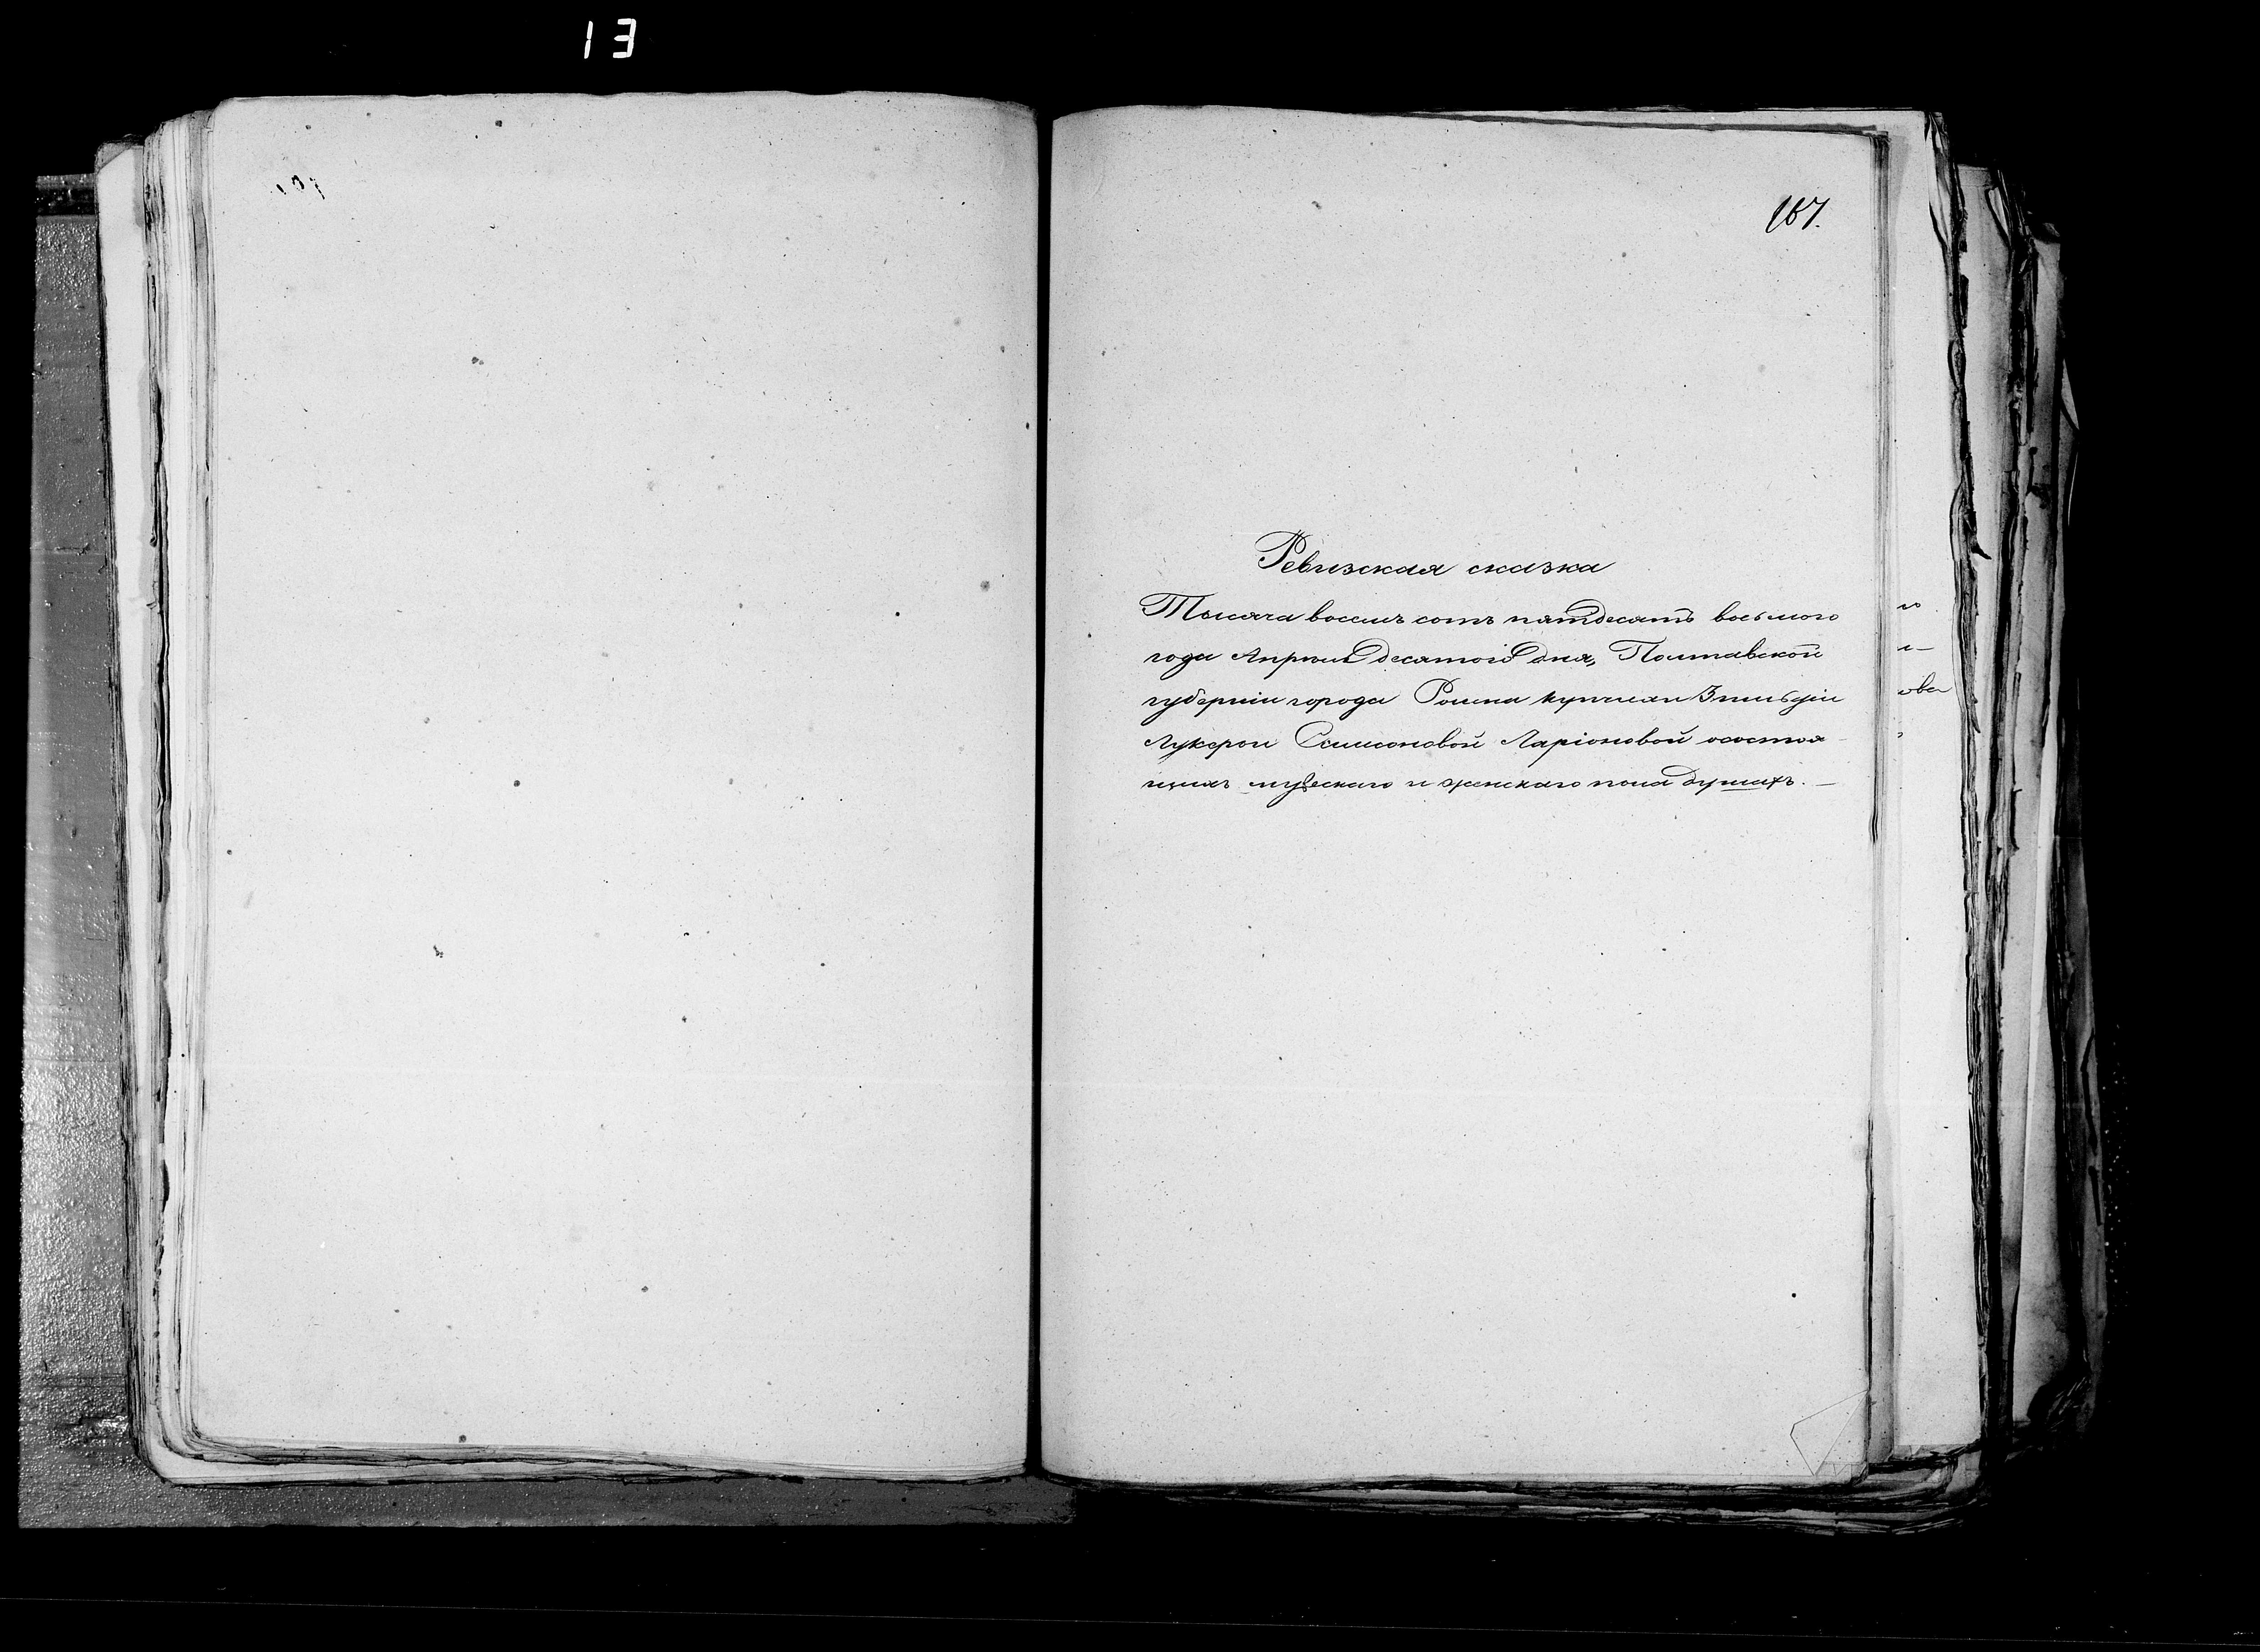 13
167.
Ревизская сказка
Тысяча восемь сотъ пятдесятъ восьмого
года Апрѣля десятого дня, Полтавской
губерніи города Ромна купчихи 3 гильдіи
Лукеріи Самсоновой Ларіоновой о состоя
щихъ мужескаго и женскаго пола душахъ. —
ова